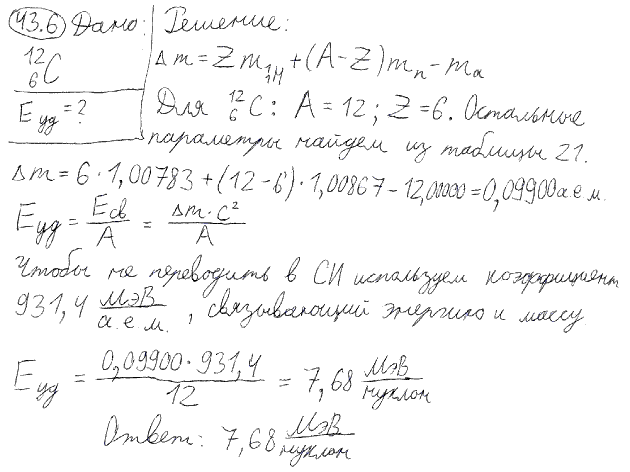 43.6 Дано: Решение:
¹²₆C
Δm = Zm₁₁H + (A − Z)mₙ − mₐ
E уд = ?
Для ¹²₆C: A = 12; Z = 6. Остальные
параметры найдем из таблицы 21.
Δm = 6 · 1,00783 + (12 − 6) · 1,00867 − 12,00000 = 0,09900 а.е.м.
E уд = Eсв/A = Δm·c²/A
Чтобы не переводить в СИ используем коэффициент
931,4 МэВ/а.е.м., связывающий энергию и массу
E уд = 0,09900·931,4/12 = 7,68 МэВ/нуклон
Ответ: 7,68 МэВ/нуклон